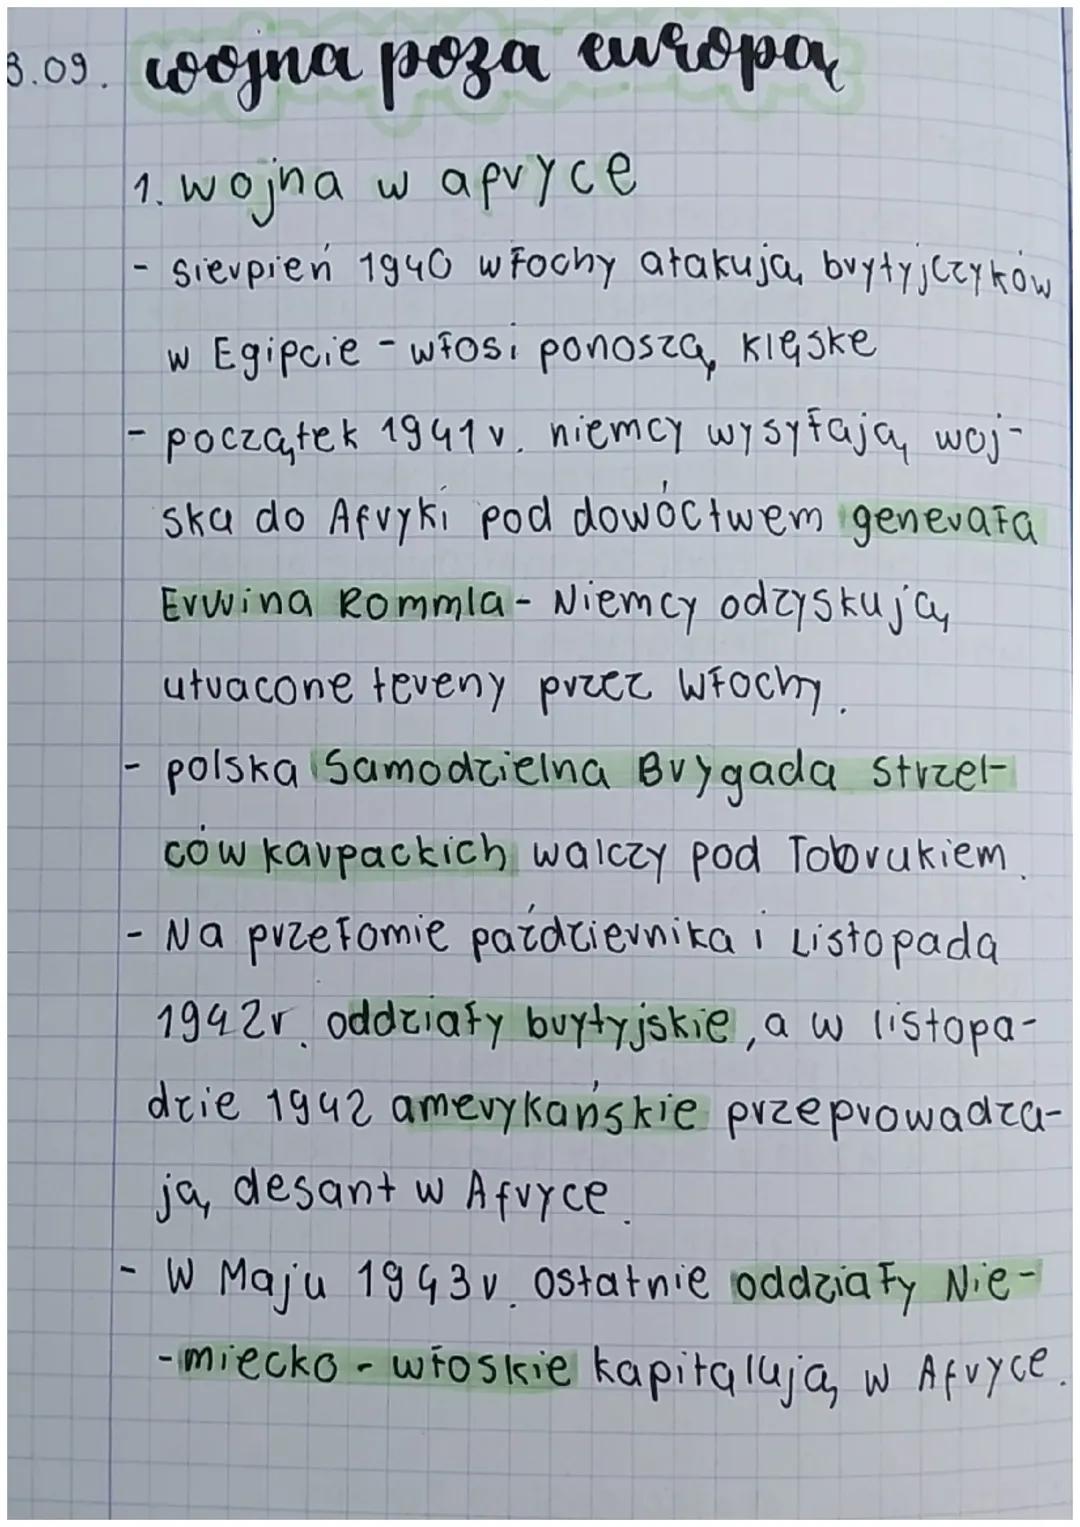 3.09. wojna poza europą
1. wojna w afryce
- sierpień 1940 włochy atakują brytyjczyków
w Egipcie - włosi ponoszą klęske
- początek 1941r. niemcy wysyłają woj-
ska do Afryki pod dowóctwem generała
Erwina Rommla - Niemcy odzyskują
utracone tereny przez Włochy.
- polska Samodzielna Brygada Strzel-
ców karpackich walczy pod Tobrukiem.
- Na przełomie października i Listopada
1942r. oddziały brytyjskie, a w listopa-
dzie 1942 amerykańskie przeprowadza-
ją desant w Afryce.
- W Maju 1943r. Ostatnie oddziały Nie-
-miecko - włoskie kapitalują w Afryce.